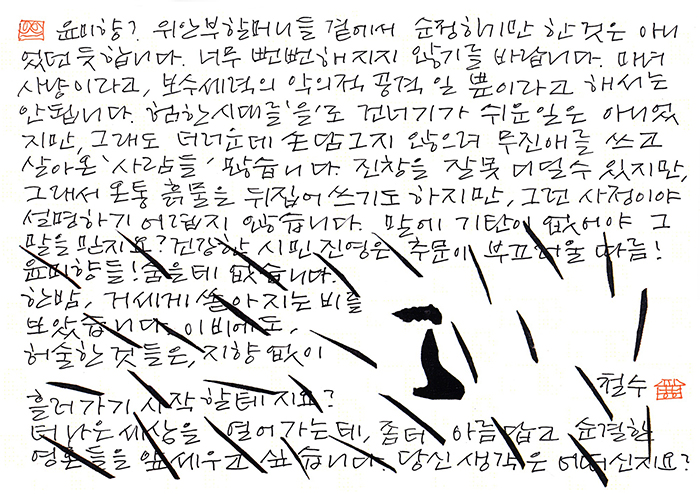 윤미향? 위안부할머니들 곁에서 순정하기만 한 것은 아니
었던 듯합니다. 너무 뻔뻔해지지 않기를 바랍니다. 마녀
사냥이라고, 보수세력의 악의적 공격일 뿐이라고 해서는
안됩니다. 험한시대를 '을'로 건너기가 쉬운일은 아니었
지만, 그래도 더러운데 손 담그지 않으려 무진애를 쓰고
살아온 '사람들' 많습니다. 진창을 잘못 디딜수 있지만,
그래서 온통 흙물을 뒤집어 쓰기도 하지만, 그런 사정이야
설명하기 어렵지 않습니다. 말에 기탄이 없어야 그
말을 믿지요? 건강한 시민 진영은 추문이 부끄러울 따름!
윤미향들! 숨을데 없습니다.
한밤, 거세게 쏟아지는 비를
보았습니다. 이 비에도,
허술한 것들은, 지향 없이
흘러가기 시작할테지요?
철수
더 나은 세상을 열어 가는데, 좀더 아름답고 순결한
영혼들을 앞세우고 싶습니다. 당신 생각은 어떠신지요?